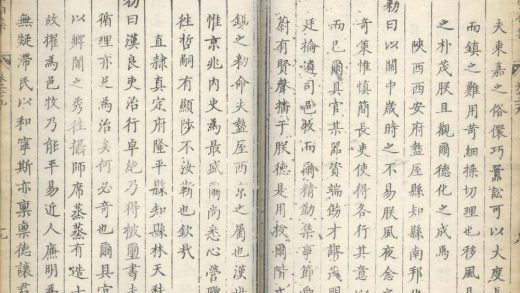 夫東嘉之俗儇巧嚚訟可以大度長
而鎮之難用苛細操切理也移風易
之朴茂朕且觀德化之成焉
陝西西安府盩厔縣知縣南邦
勅曰以關中歲時之不易朕夙夜念
奇策惟慎簡長吏使得各行其意以
而已爾具官某器資端飭才諝茂明
廷掄通司邑牧而爾精勤集事節
蔚有賢聲播于朕德是用授爾階
錫之勅命夫盩厔西京之屬也漢世
惟京兆内史為最盛爾尚悉心營職
往哲嗣有顯陟不汝靳也欽哉
直隷真定府隆平縣知縣林天秩
勅曰漢良吏治行卓絕乃得被璽書夫
循理亦足為治矣何必奇也爾具官
以鄉闈之秀往攝師席蒸蒸有造士
故擢為邑牧乃能平易近人廉明
無疑滯民以和寧斯亦稟稟德讓君